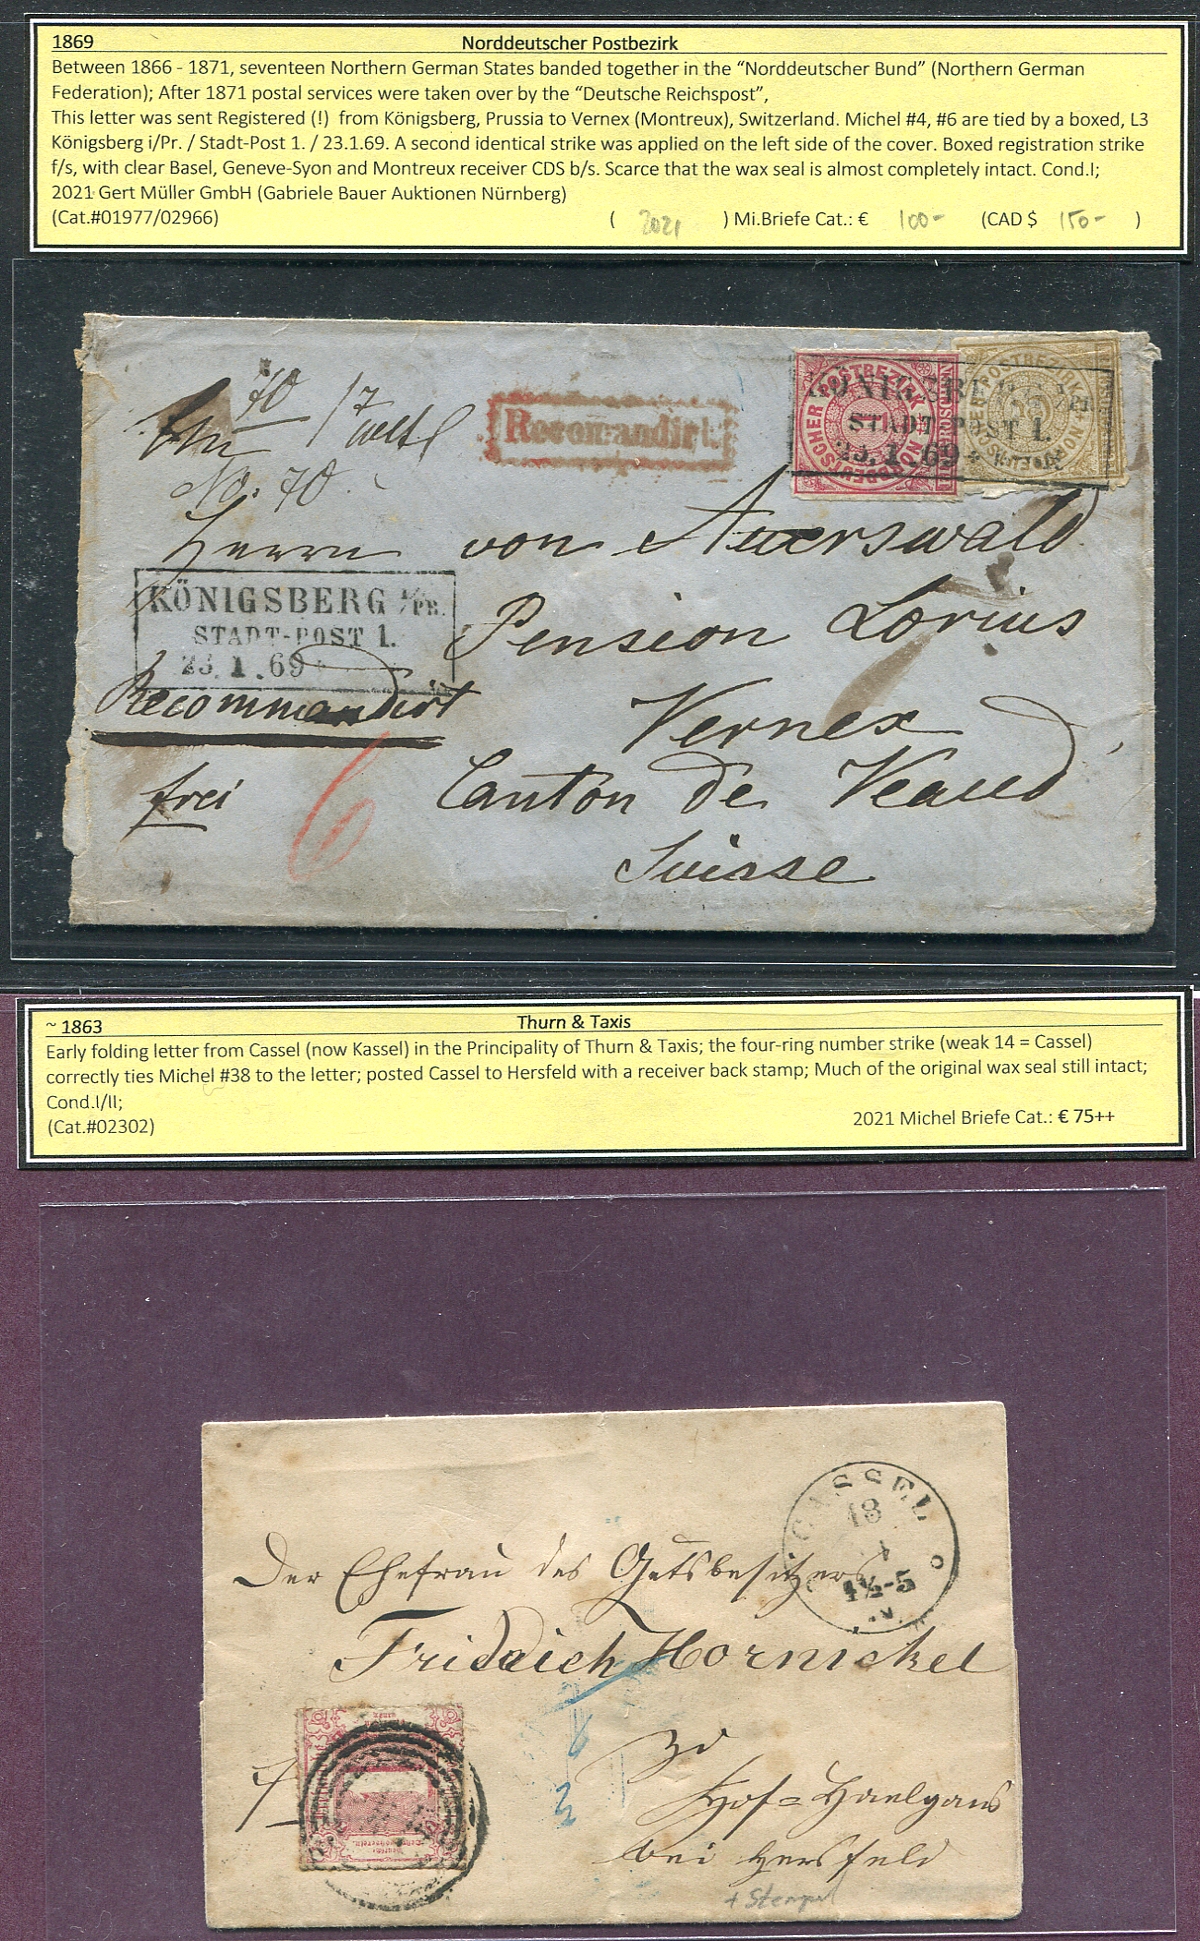 1869 Norddeutscher Postbezirk
Between 1866 - 1871, seventeen Northern German States banded together in the “Norddeutscher Bund” (Northern German
Federation); After 1871 postal services were taken over by the “Deutsche Reichspost”,
This letter was sent Registered (!) from Königsberg, Prussia to Vernex (Montreux), Switzerland. Michel #4, #6 are tied by a boxed, L3
Königsberg i/Pr. / Stadt-Post 1. / 23.1.69. A second identical strike was applied on the left side of the cover. Boxed registration strike
f/s, with clear Basel, Geneve-Syon and Montreux receiver CDS b/s. Scarce that the wax seal is almost completely intact. Cond.I;
2021 Gert Müller GmbH (Gabriele Bauer Auktionen Nürnberg)
(Cat.#01977/02966) ( 2021 ) Mi.Briefe Cat.: € 100- (CAD $ 150- )
70
No. 70
Recomandirt
NORDDEUTSCHER POSTBEZIRK
KÖNIGSBERG I/PR.
STADT-POST 1.
23.1.69
Herrn von Auerswald
KÖNIGSBERG I/PR.
STADT-POST 1.
23.1.69
Pension Lorius
Recommandirt
Vernex
frei
6
Canton de Veaud
Suisse
~ 1863 Thurn & Taxis
Early folding letter from Cassel (now Kassel) in the Principality of Thurn & Taxis; the four-ring number strike (weak 14 = Cassel)
correctly ties Michel #38 to the letter; posted Cassel to Hersfeld with a receiver back stamp; Much of the original wax seal still intact;
Cond.I/II;
(Cat.#02302) 2021 Michel Briefe Cat.: € 75++
CASSEL
18
4½-5
Der Ehefrau des Gutsbesitzers
Friedrich Hornickel
zu
Hof=
bei Hersfeld
+ Stempel